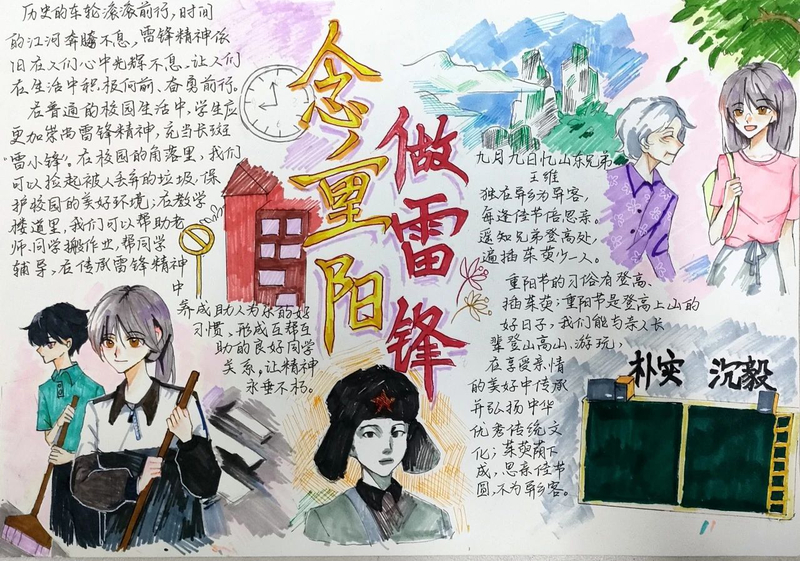 历史的车轮滚滚前行，时间
的江河奔腾不息，雷锋精神依
旧在人们心中光辉不息，让人们
在生活中积极向前、奋勇前行。
在普通的校园生活中，学生应
更加崇尚雷锋精神，充当长班
“雷小锋”。在校园的角落里，我们
可以捡起被人丢弃的垃圾，保
护校园的美好环境；在教学
楼道里，我们可以帮助老
师、同学搬作业，帮同学
辅导，在传承雷锋精神
中
养成助人为乐的好
习惯、形成互帮互
助的良好同学
关系，让精神
永垂不朽。
念重阳
做雷锋
九月九日忆山东兄弟
王维
独在异乡为异客，
每逢佳节倍思亲。
遥知兄弟登高处，
遍插茱萸少一人。
重阳节的习俗有登高、
插茱萸；重阳节是登高上山的
好日子，我们能与亲人长
辈登山高山、游玩，
在享受亲情
的美好中传承
并弘扬中华
优秀传统文
化；茱萸荫下
成，思亲佳节
圆，不为异乡客。
朴实 沉毅